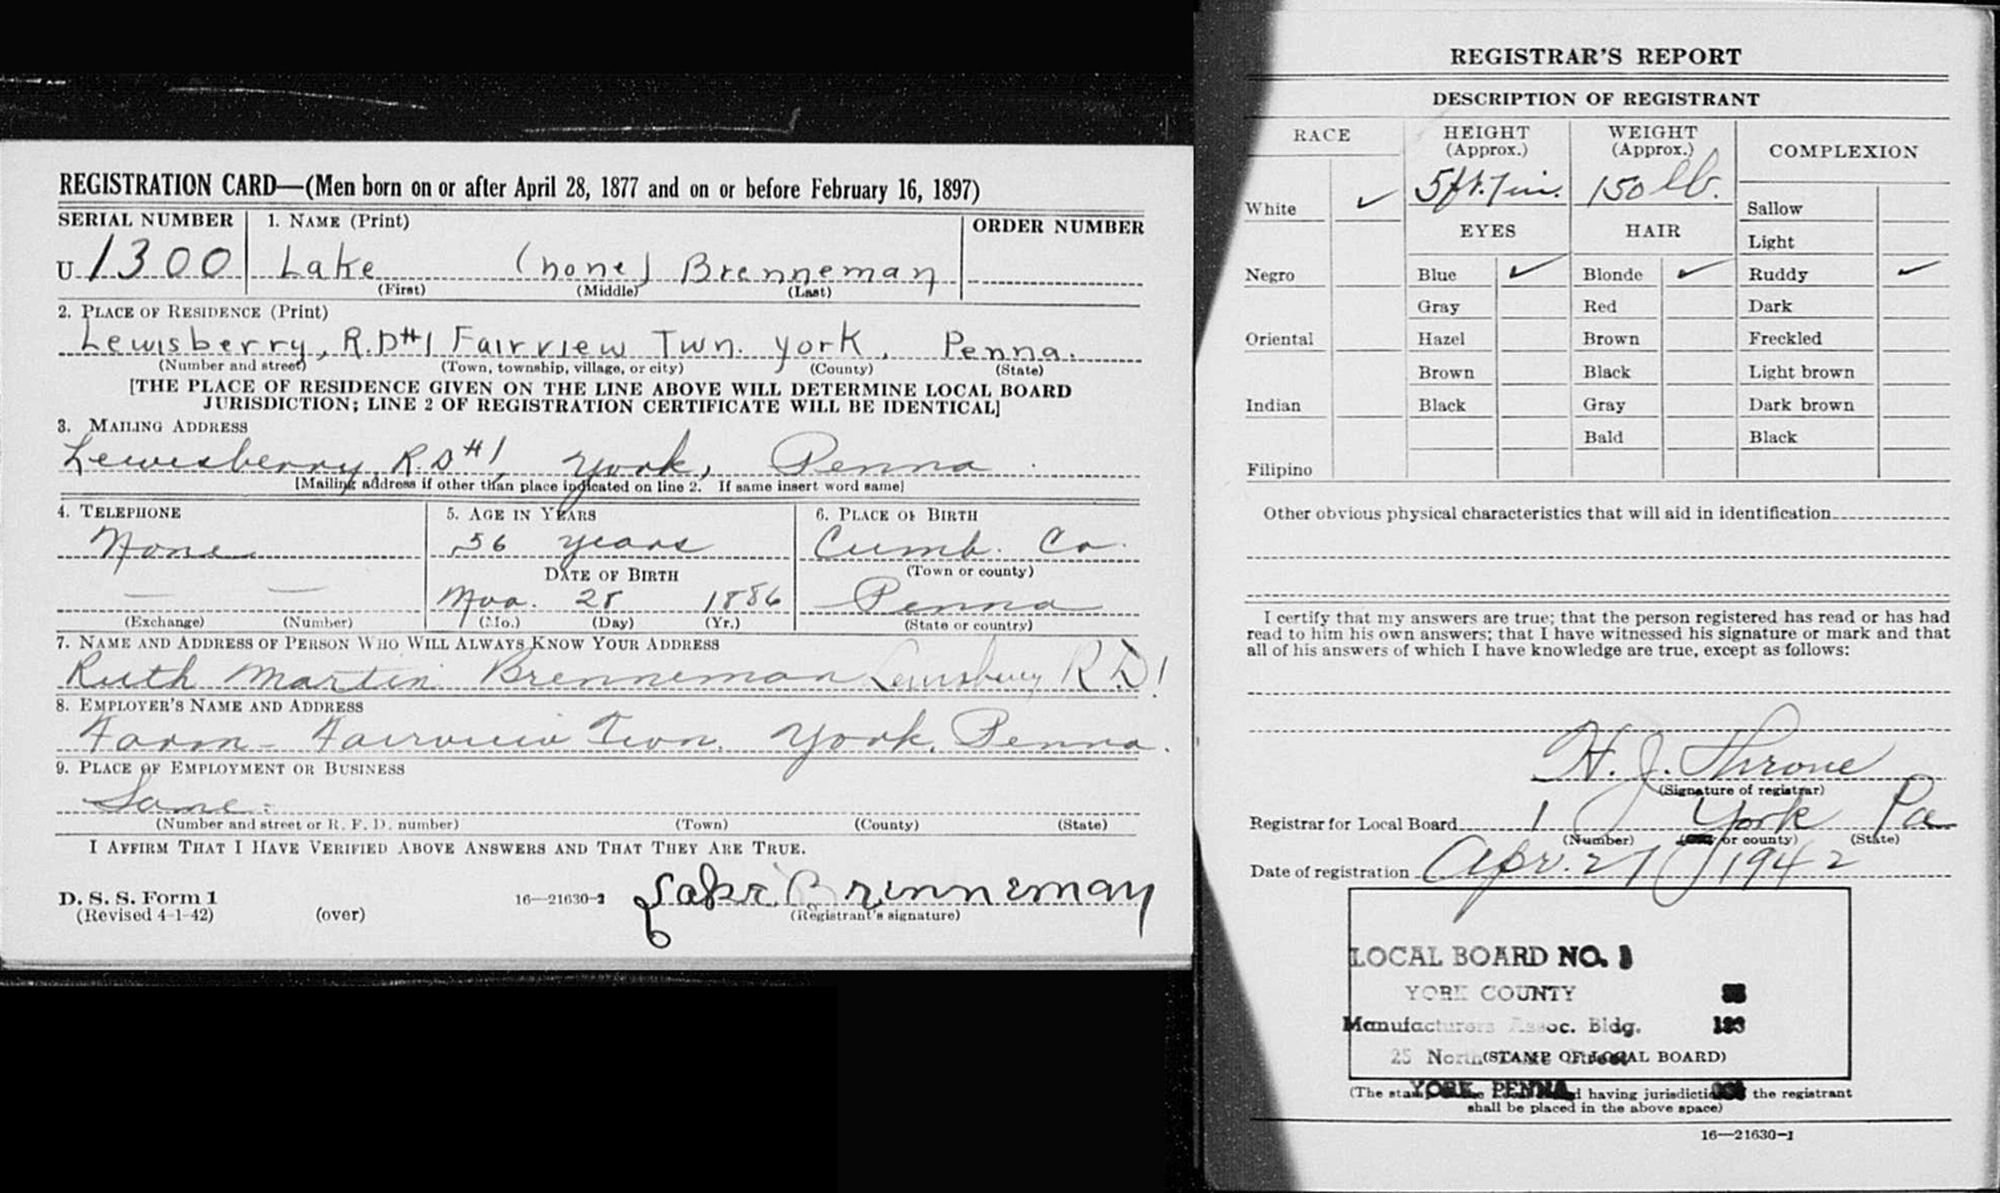 REGISTRATION CARD—(Men born on or after April 28, 1877 and on or before February 16, 1897)
SERIAL NUMBER 1. NAME (Print) ORDER NUMBER
U 1300 Lake (none) Brenneman
(First) (Middle) (Last)
2. PLACE OF RESIDENCE (Print)
Lewisberry, R.D#1 Fairview Twn. York, Penna.
(Number and street) (Town, township, village, or city) (County) (State)
[THE PLACE OF RESIDENCE GIVEN ON THE LINE ABOVE WILL DETERMINE LOCAL BOARD
JURISDICTION; LINE 2 OF REGISTRATION CERTIFICATE WILL BE IDENTICAL]
3. MAILING ADDRESS
Lewisberry, R.D#1, York, Penna
[Mailing address if other than place indicated on line 2. If same insert word same]
4. TELEPHONE 5. AGE IN YEARS 6. PLACE OF BIRTH
None 56 years Cumb. Co.
DATE OF BIRTH (Town or county)
28 1886 Penna
(Exchange) (Number) (Mo.) (Day) (Yr.) (State or country)
7. NAME AND ADDRESS OF PERSON WHO WILL ALWAYS KNOW YOUR ADDRESS
Ruth Martin Brenneman Lewisberry R D 1
8. EMPLOYER'S NAME AND ADDRESS
Farm - Fairview Twn. York, Penna.
9. PLACE OF EMPLOYMENT OR BUSINESS
Same.
(Number and street or R. F. D. number) (Town) (County) (State)
I AFFIRM THAT I HAVE VERIFIED ABOVE ANSWERS AND THAT THEY ARE TRUE.
D. S. S. Form 1
(Revised 4-1-42) (over) 16—21630-1 Lake Brenneman
(Registrant's signature)
REGISTRAR'S REPORT
DESCRIPTION OF REGISTRANT
RACE HEIGHT (Approx.) WEIGHT (Approx.) COMPLEXION
White ✓ 5ft. 7in. 150 lb. Sallow
EYES HAIR Light
Negro Blue ✓ Blonde ✓ Ruddy ✓
Gray Red Dark
Oriental Hazel Brown Freckled
Brown Black Light brown
Indian Black Gray Dark brown
Bald Black
Filipino
Other obvious physical characteristics that will aid in identification
I certify that my answers are true; that the person registered has read or has had
read to him his own answers; that I have witnessed his signature or mark and that
all of his answers of which I have knowledge are true, except as follows:
H. J. Throne
(Signature of registrar)
Registrar for Local Board 1 York Pa
(Number) or county) (State)
Date of registration Apr. 27 1942
LOCAL BOARD NO. 1
YORK COUNTY
Manufacturers Assoc. Bldg.
25 North
(STAMP OF LOCAL BOARD)
YORK, PENNA
(The having jurisdiction the registrant
shall be placed in the above space)
16—21630-1